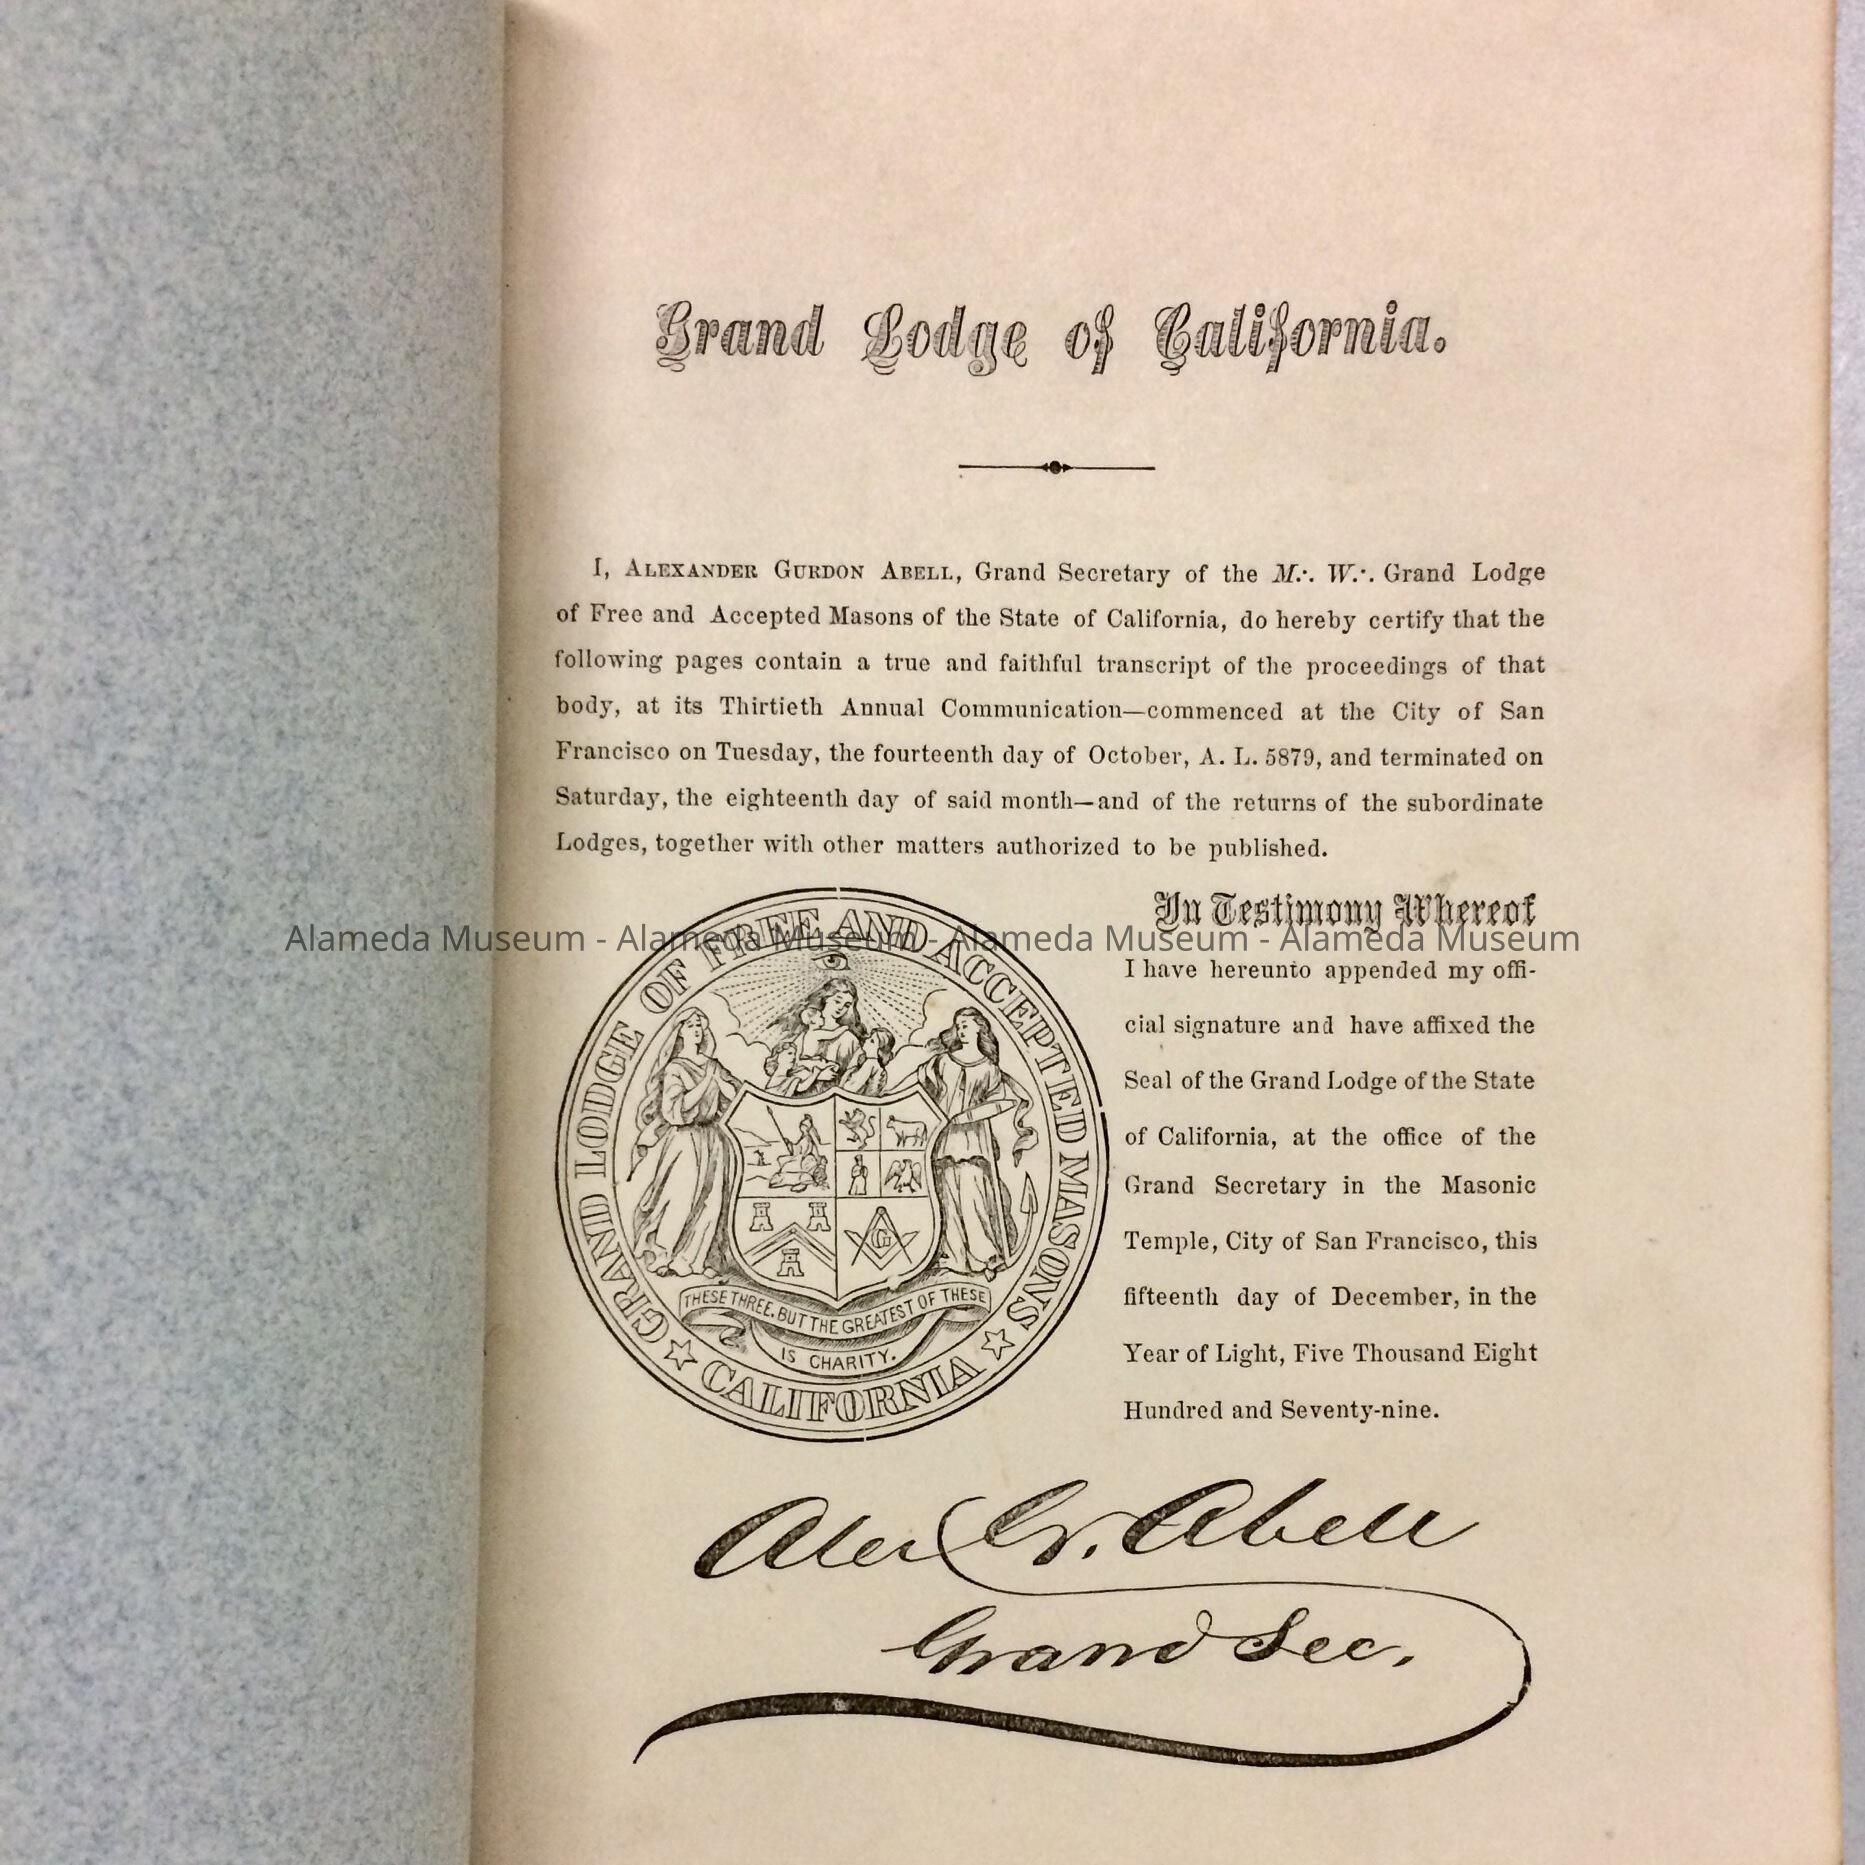 Grand Lodge of California.
I, ALEXANDER GURDON ABELL, Grand Secretary of the M∴ W∴ Grand Lodge
of Free and Accepted Masons of the State of California, do hereby certify that the
following pages contain a true and faithful transcript of the proceedings of that
body, at its Thirtieth Annual Communication—commenced at the City of San
Francisco on Tuesday, the fourteenth day of October, A. L. 5879, and terminated on
Saturday, the eighteenth day of said month—and of the returns of the subordinate
Lodges, together with other matters authorized to be published.
GRAND LODGE OF FREE AND ACCEPTED MASONS
G
THESE THREE. BUT THE GREATEST OF THESE
IS CHARITY.
☆ CALIFORNIA ☆
In Testimony Whereof
Alameda Museum - Alameda Museum - Alameda Museum - Alameda Museum
I have hereunto appended my offi-
cial signature and have affixed the
Seal of the Grand Lodge of the State
of California, at the office of the
Grand Secretary in the Masonic
Temple, City of San Francisco, this
fifteenth day of December, in the
Year of Light, Five Thousand Eight
Hundred and Seventy-nine.
Alex G. Abell
Grand Sec.